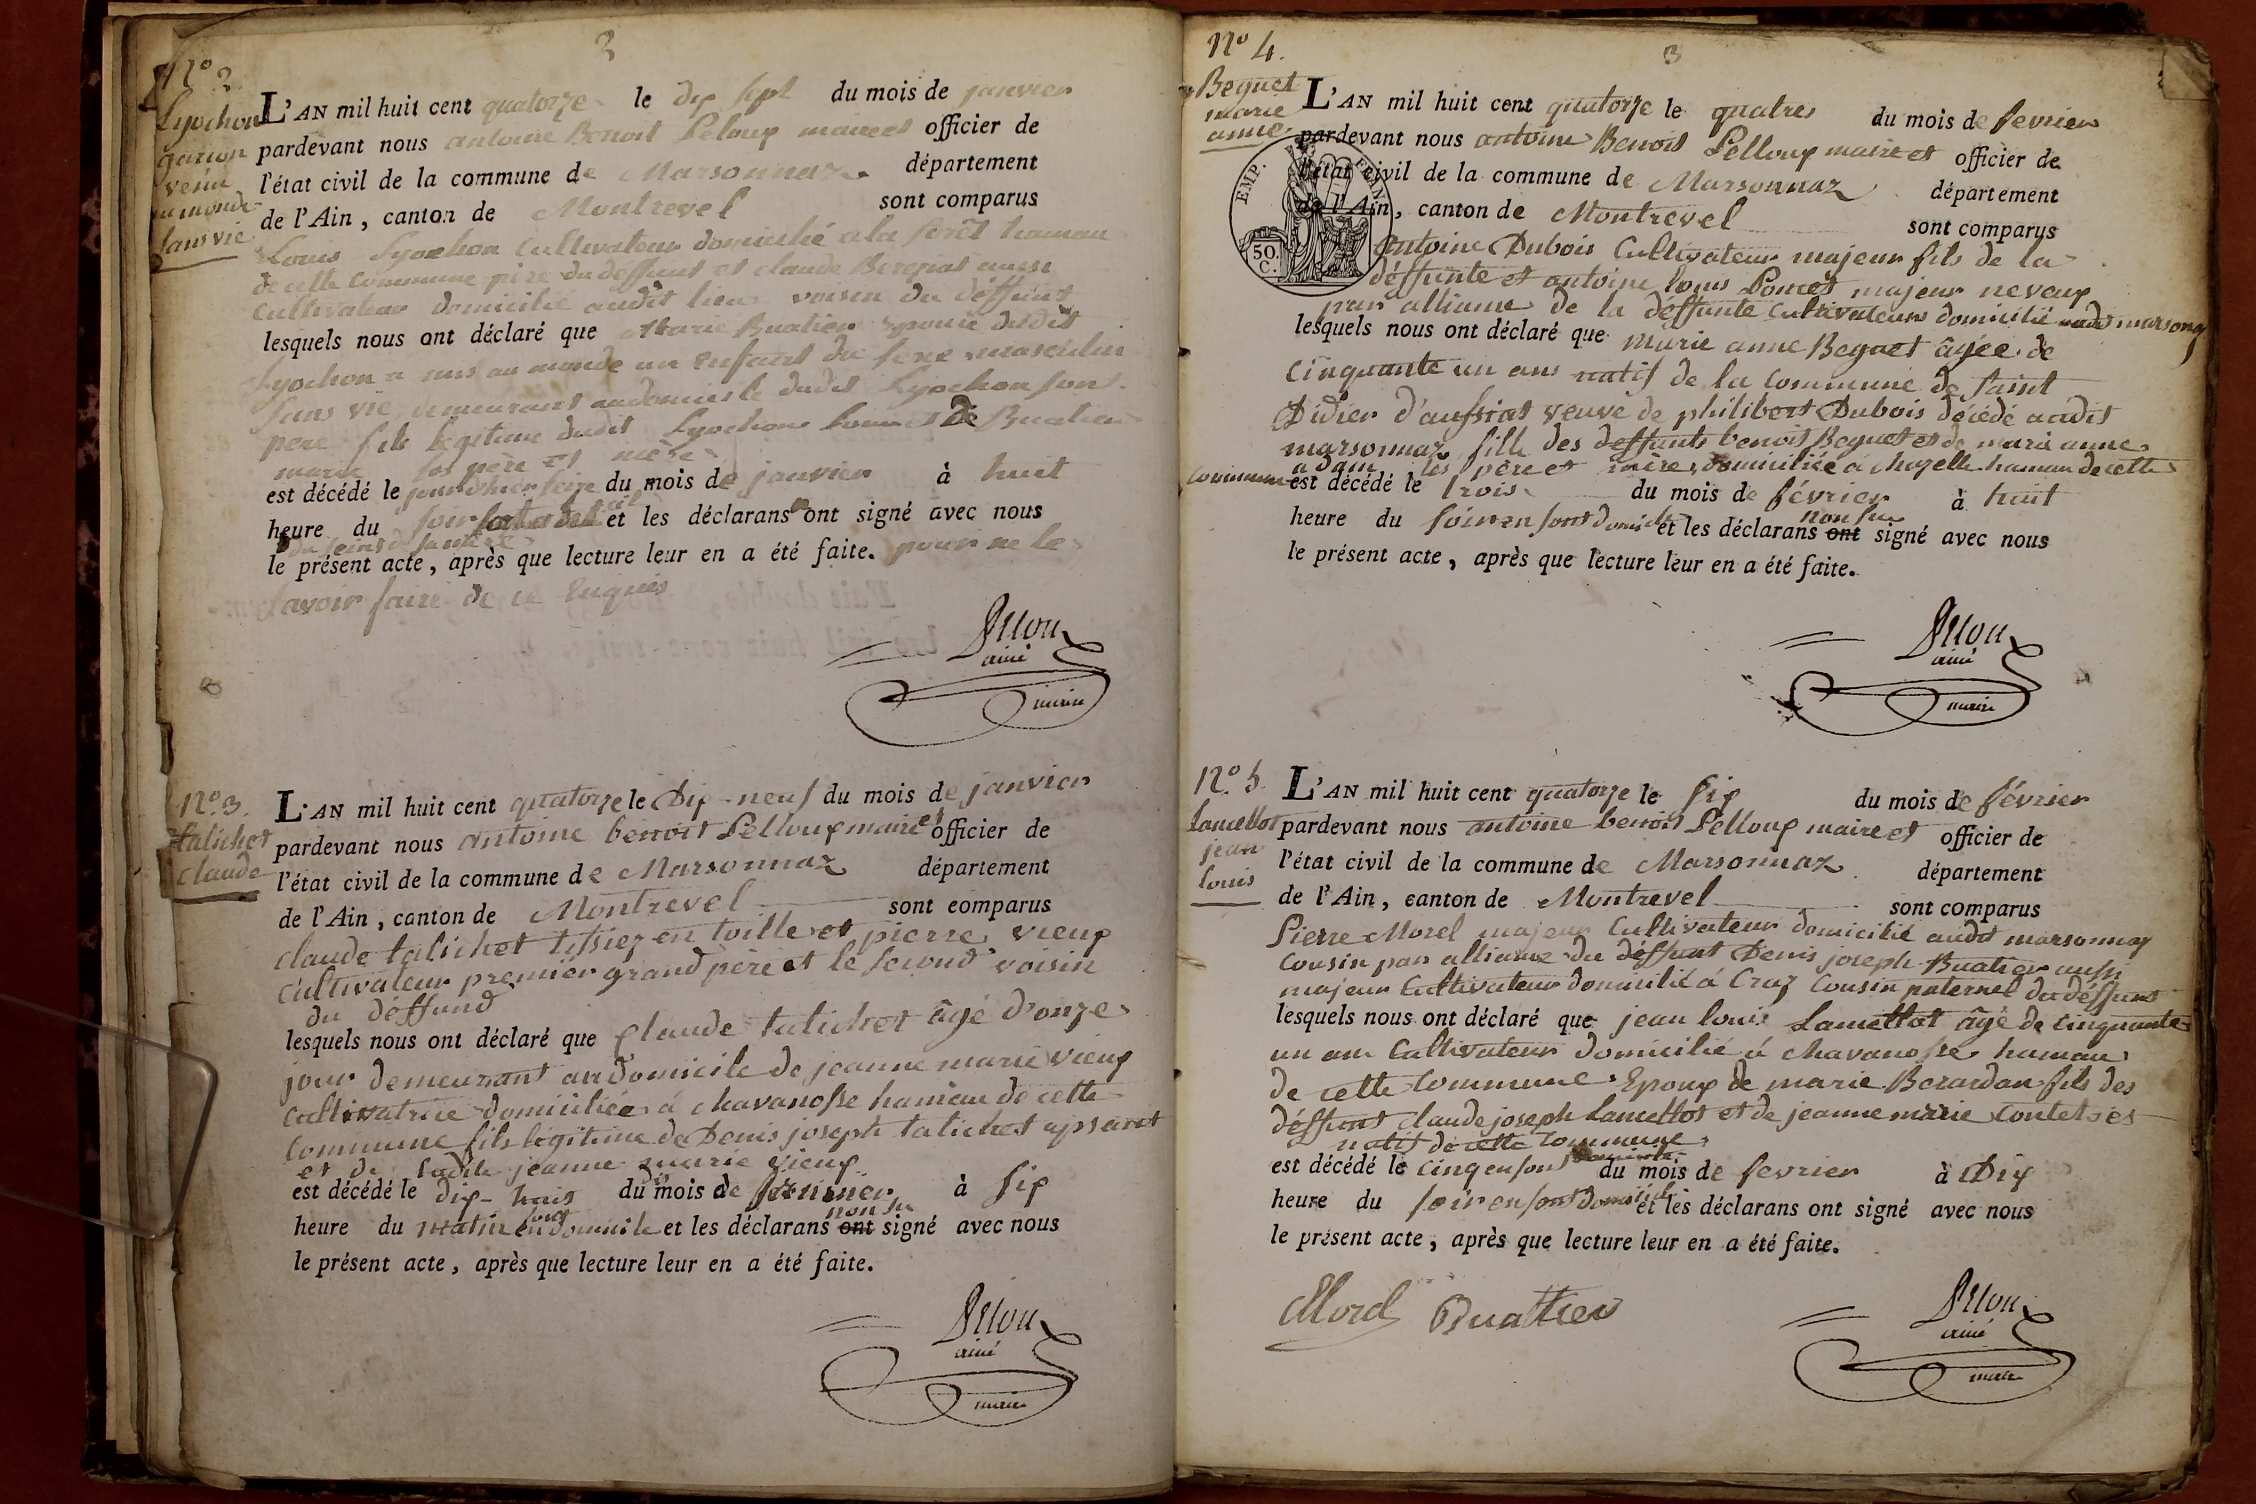 3
N.o 2.
Lyochon
garçon
venu
au monde
sans vie
L'AN mil huit cent quatorze le dix sept du mois de janvier
pardevant nous antoine Benoit Peloux maire et officier de
l'état civil de la commune de Marsonnaz département
de l'Ain, canton de Montrevel sont comparus
Louis Lyochon Cultivateur domicilié a la forêt hameau
de cette Commune père du deffunt et claude Bereziat aussi
Cultivateur domicilié audit lieu voisin du déffunt
lesquels nous ont déclaré que Marie Buatier epouse dudit
Lyochon a mis au monde un enfant du sexe masculin
sans vie demeurant audomicile dudit Lyochon son
pere fils légitime dudit Lyochon Louis et de Buatier
marie ses père et mère
est décédé le jourdhier seize du mois de janvier à huit
heure du soir et les déclarans ont signé avec nous
le présent acte, après que lecture leur en a été faite. pour ne le
savoir faire de ce enquis
Pelloux
ainé
maire
N.o 3.
talichet
claude
L'AN mil huit cent quatorze le Dix-neuf du mois de janvier
pardevant nous antoine benoit Pelloux maire et officier de
l'état civil de la commune de Marsonnaz département
de l'Ain, canton de Montrevel sont comparus
claude talichet tissiez en toille et pierre vieux
cultivateur premier grand père et le second voisin
du déffund
lesquels nous ont déclaré que Claude talichet âgé d'onze
jour demeurant audomicile de jeanne marie vieux
cultivatrice domiciliée á chavanosse hameau de cette
Commune fils légitime de Denis joseph talichet apsant
et de ladite jeanne marie vieux
est décédé le dix-huit du mois de janvier à six
heure du matin en sont domicile et les déclarans ont non su signé avec nous
le présent acte, après que lecture leur en a été faite.
Pelloux
ainé
maire
3
N.o 4.
Beguet
marie
anne
L'AN mil huit cent quatorze le quatres du mois de fevrier
pardevant nous antoine Benoit Pelloux maire et officier de
l'état civil de la commune de Marsonnaz département
de l'Ain, canton de Montrevel sont comparus
EMP. FRAN.
50.
C.
antoine Dubois Cultivateur majeur fils de la
déffunte et antoine louis Poncet majeur neveux
par alliance de la déffunte Cultivateurs domicilié audit marsonay
lesquels nous ont déclaré que marie anne Beguet âgée de
Cinquante un ans natif de la Commune de saint
Didier d'aussiat veuve de philibert Dubois décédé audit
marsonnaz fille des deffunts benoit Beguet et de marie anne
adam ses père et mère, domiciliée á chazelle hameau de cette
Commune est décédé le trois du mois de février à huit
heure du soir en sont domicile et les déclarans ont non su signé avec nous
le présent acte, après que lecture leur en a été faite.
Pelloux
ainé
maire
N.o 5.
Lancellot
jean
louis
L'AN mil huit cent quatorze le six du mois de février
pardevant nous antoine benoit Pelloux maire et officier de
l'état civil de la commune de Marsonnaz département
de l'Ain, canton de Montrevel sont comparus
Pierre Morel majeur Cultivateur domicilié audit marsonnay
Cousin par alliance du déffunt Denis joseph Buatier aussi
majeur Cultivateur domicilié á Cruz Cousin paternel du déffunt
lesquels nous ont déclaré que jean louis Lancellot âgé de cinquante
un ans Cultivateur domicilié á chavanosse hameau
de cette Commune Epoux de marie Berardan fils des
déffunt claude joseph Lancellot et de jeanne marie Contet ses
natif de cette Commune
est décédé le cinq en sont domicile du mois de fevrier à Dix
heure du soir en sont domicile et les déclarans ont signé avec nous
le présent acte, après que lecture leur en a été faite.
Morel Buatier
Pelloux
ainé
maire